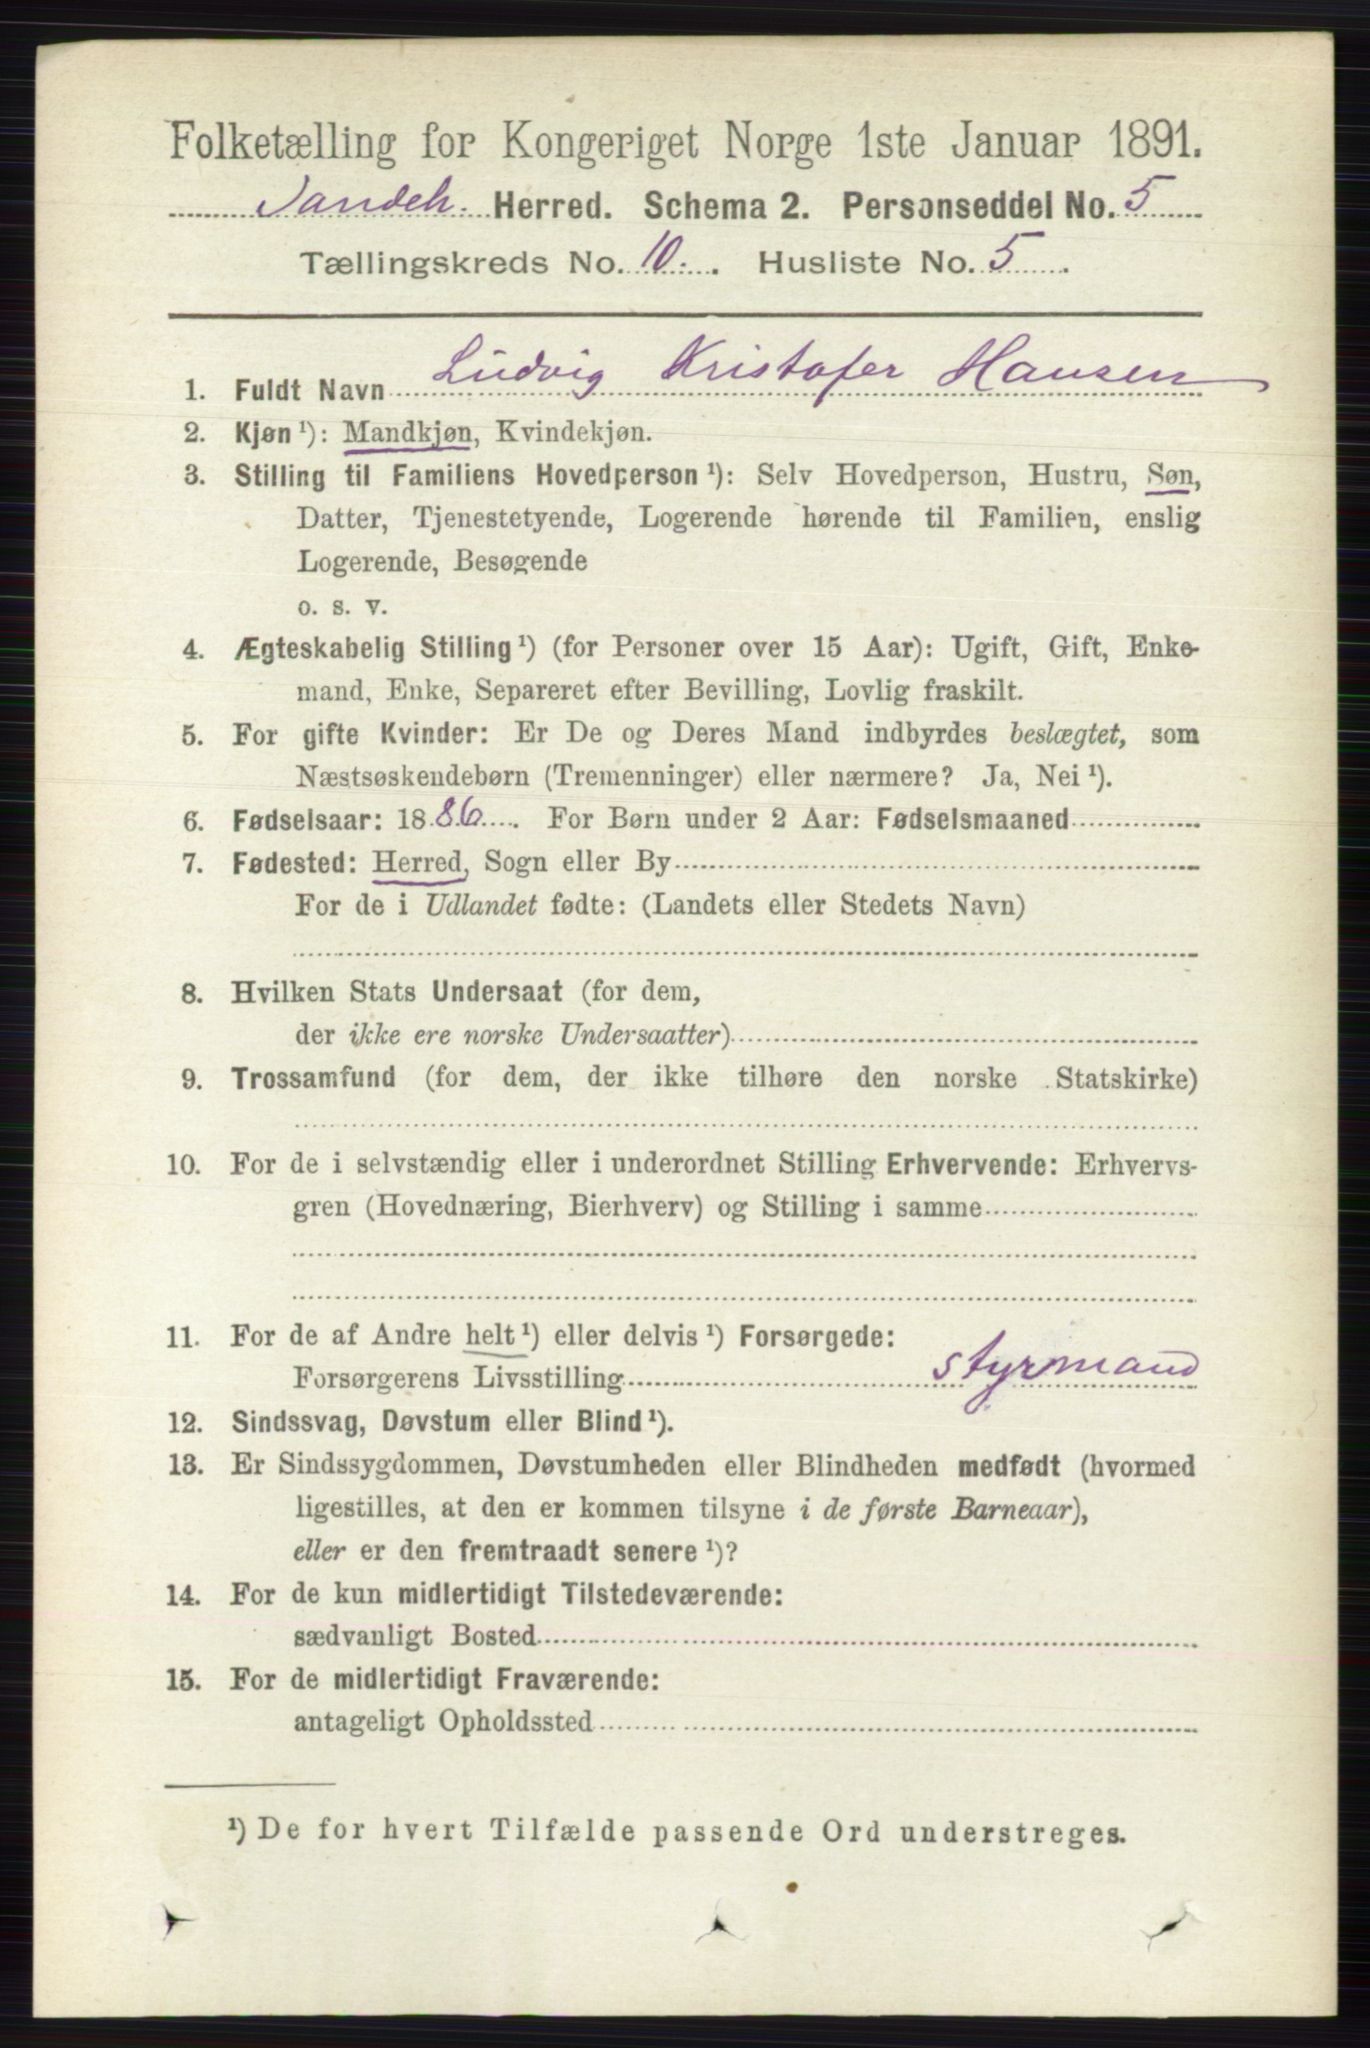 Folketælling for Kongeriget Norge 1ste Januar 1891.
Sandeh. Herred. Schema 2. Personseddel No. 5
Tællingskreds No. 10. Husliste No. 5.
1. Fuldt Navn Ludvig Kristofer Hansen
2. Kjøn ¹): Mandkjøn, Kvindekjøn.
3. Stilling til Familiens Hovedperson ¹): Selv Hovedperson, Hustru, Søn,
Datter, Tjenestetyende, Logerende hørende til Familien, enslig
Logerende, Besøgende
o. s. v.
4. Ægteskabelig Stilling ¹) (for Personer over 15 Aar): Ugift, Gift, Enke-
mand, Enke, Separeret efter Bevilling, Lovlig fraskilt.
5. For gifte Kvinder: Er De og Deres Mand indbyrdes beslægtet, som
Næstsøskendebørn (Tremenninger) eller nærmere? Ja, Nei ¹).
6. Fødselsaar: 1886. For Børn under 2 Aar: Fødselsmaaned
7. Fødested: Herred, Sogn eller By
For de i Udlandet fødte: (Landets eller Stedets Navn)
8. Hvilken Stats Undersaat (for dem,
der ikke ere norske Undersaatter)
9. Trossamfund (for dem, der ikke tilhøre den norske Statskirke)
10. For de i selvstændig eller i underordnet Stilling Erhvervende: Erhvervs-
gren (Hovednæring, Bierhverv) og Stilling i samme
11. For de af Andre helt ¹) eller delvis ¹) Forsørgede:
Forsørgerens Livsstilling styrmand
12. Sindssvag, Døvstum eller Blind ¹).
13. Er Sindssygdommen, Døvstumheden eller Blindheden medfødt (hvormed
ligestilles, at den er kommen tilsyne i de første Barneaar),
eller er den fremtraadt senere ¹)?
14. For de kun midlertidigt Tilstedeværende:
sædvanligt Bosted
15. For de midlertidigt Fraværende:
antageligt Opholdssted
¹) De for hvert Tilfælde passende Ord understreges.